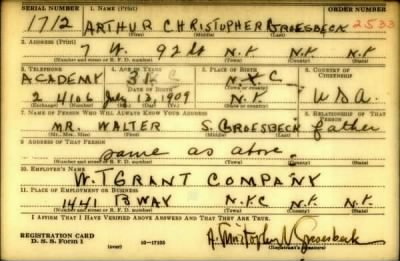 SERIAL NUMBER 1. NAME (Print)
1712 ARTHUR CHRISTOPHER GROESBECK 2533
(First) (Middle) (Last)
2. ADDRESS (Print)
7 W. 92 St N.Y. N.Y. N.Y.
(Number and street or R. F. D. number) (Town) (County) (State)
3. TELEPHONE 4. AGE IN YEARS 5. PLACE OF BIRTH 6. COUNTRY OF CITIZENSHIP
ACADEMY 31 N.Y.C
DATE OF BIRTH (Town or county)
2 4106 July 13, 1909 N.Y. USA
(Exchange) (Number) (Mo.) (Day) (Yr.) (State or country)
7. NAME OF PERSON WHO WILL ALWAYS KNOW YOUR ADDRESS 8. RELATIONSHIP OF THAT PERSON
MR. WALTER S. GROESBECK father
(Mr., Mrs., Miss) (First) (Middle) (Last)
9. ADDRESS OF THAT PERSON
same as above.
(Number and street or R. F. D. number) (Town) (County) (State)
10. EMPLOYER'S NAME
W.T GRANT COMPANY
11. PLACE OF EMPLOYMENT OR BUSINESS
1441 B'WAY N.Y.C N.Y. N.Y.
(Number and street or R. F. D. number) (Town) (County) (State)
I AFFIRM THAT I HAVE VERIFIED ABOVE ANSWERS AND THAT THEY ARE TRUE.
REGISTRATION CARD
D. S. S. FORM 1 (over) 16—17105 A. Christopher Groesbeck
(Registrant's signature)